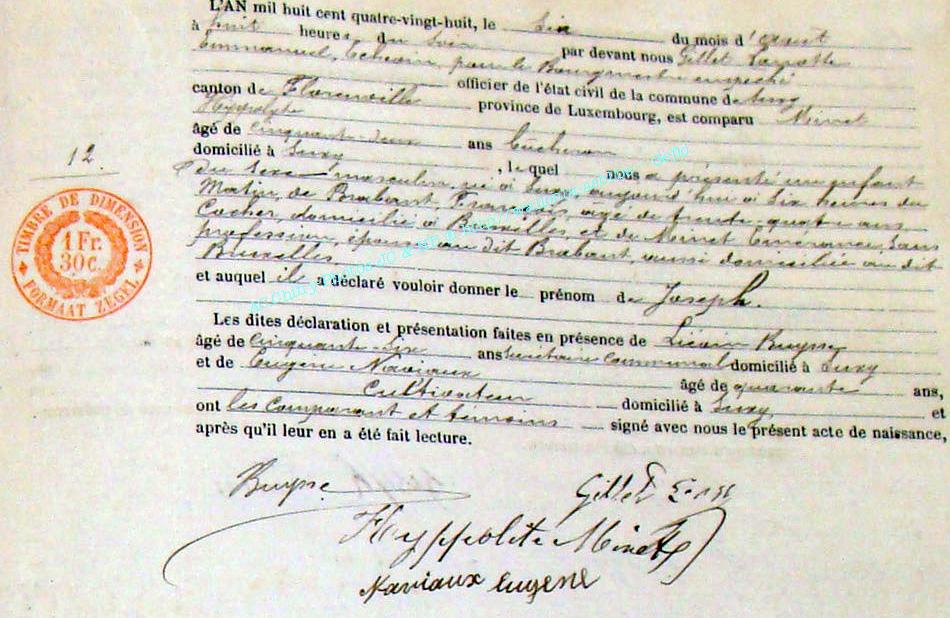 L'AN mil huit cent quatre-vingt-huit, le six du mois d'août
à huit heures du soir par devant nous Gillet
Emmanuel, Echevin, pour le Bourgmestre empêché
officier de l'état civil de la commune de Suxy
canton de Florenville province de Luxembourg, est comparu Minet
Hippolyte
âgé de cinquante-deux ans Bucheron
domicilié à Suxy, le quel nous a présenté un enfant
du sexe masculin, né à Suxy, aujourd'hui à six heures du
Matin, de Brabant François, âgé de trente-quatre ans
Cocher, domicilié à Bruxelles et de Minet Emerance, Sans
profession, épouse au dit Brabant, aussi domiciliée au dit
Bruxelles
et auquel il a déclaré vouloir donner le prénom de Joseph.
Les dites déclaration et présentation faites en présence de Buysse
âgé de cinquante-six ans secrétaire communal domicilié à Suxy
et de Eugène Naviaux âgé de quarante ans,
Cultivateur domicilié à Suxy, et
ont les comparant et témoins signé avec nous le présent acte de naissance,
après qu'il leur en a été fait lecture.
12.
TIMBRE DE DIMENSION
1 Fr.
30 c.
FORMAAT ZEGEL
Buysse
Gillet
Hyppolite Minet
Naviaux Eugene